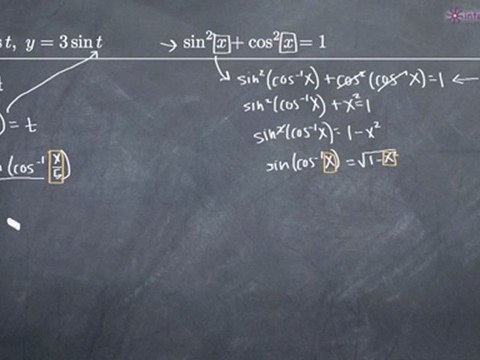 s t, y = 3 sin t → sin² x + cos² x = 1
t
sin²(cos⁻¹x) + cos²(cos⁻¹x) = 1 ←
sin²(cos⁻¹x) + x² = 1
) = t
sin²(cos⁻¹x) = 1 - x²
n (cos⁻¹ x/5)
sin(cos⁻¹x) = √1 - x²